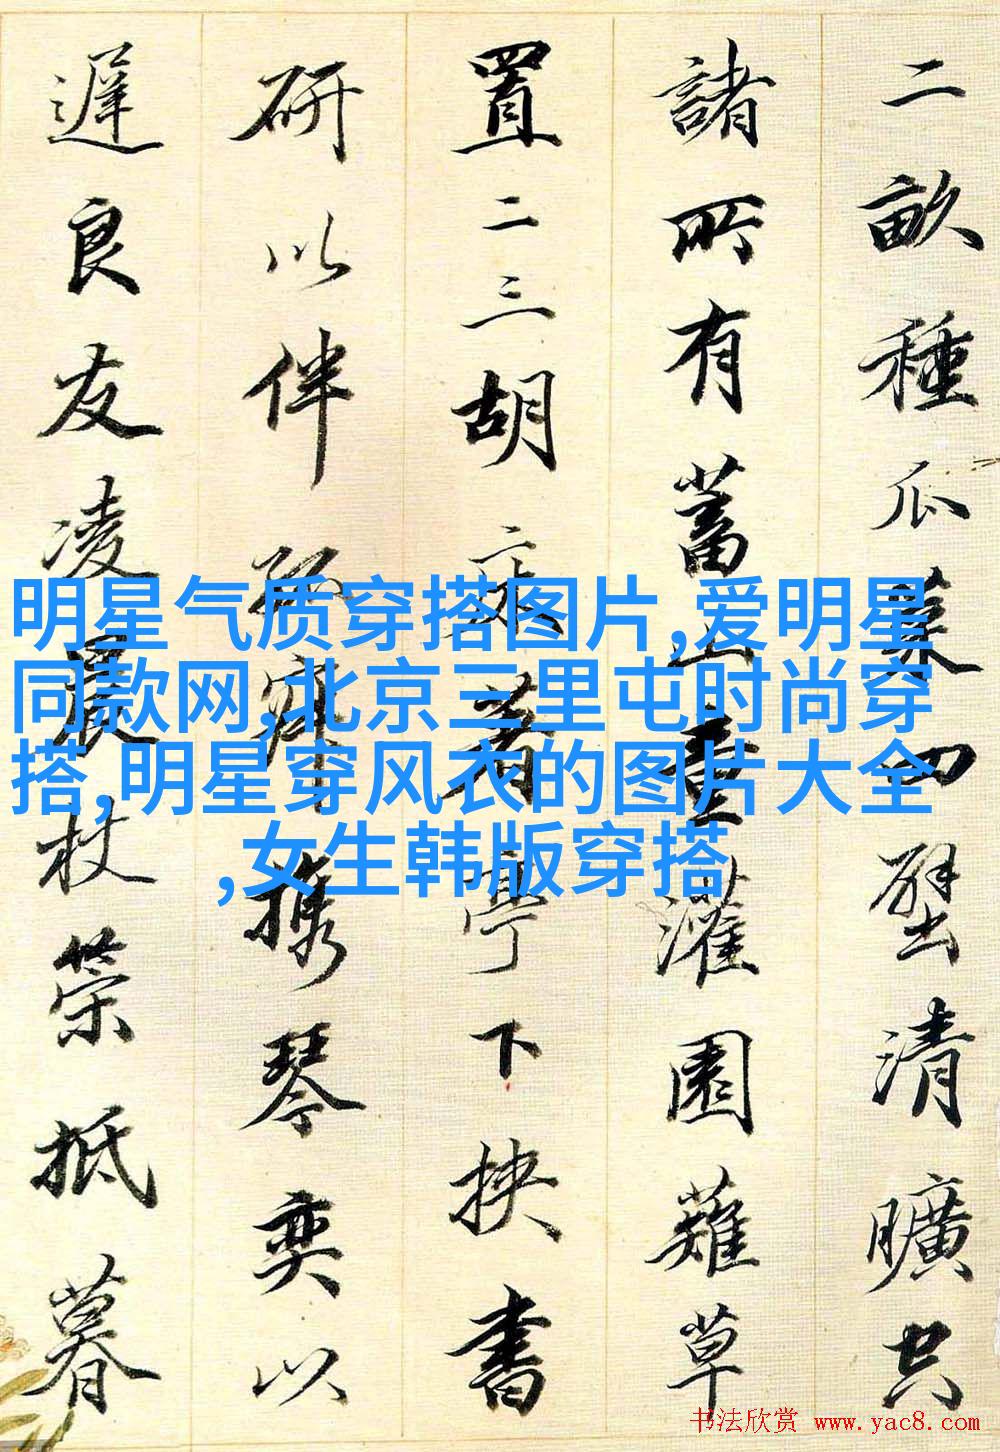 二畝種瓜菜四壁清曠空
諸所有蓄山童灌園薙草
置二三胡床著亭下挾書
研以伴孤寂攜琴奕以
遲良友凌晨杖策抵暮
明星气质穿搭图片,爱明星
同款网,北京三里屯时尚穿
搭,明星穿风衣的图片大全
,女生韩版穿搭
书法欣赏 www.yac8.com